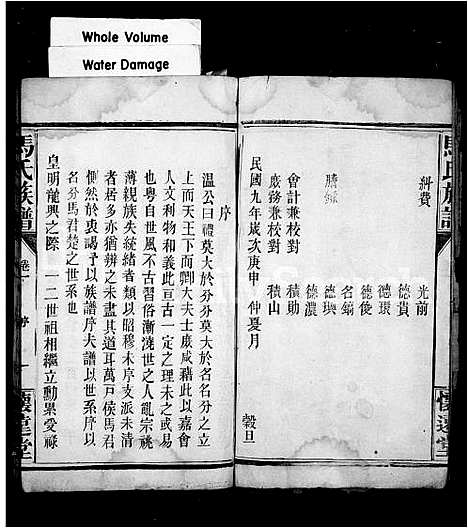 Whole Volume
Water Damage
馬氏族譜
糾費
光前
德貴
德環
德俊
名鎬
謄錄
德璵
德濃
會計兼校對
積勛
庶務兼校對
積山
民國九年歲次庚申
仲夏月
穀旦
序
溫公曰禮莫大於分分莫大於名名分之立
上而天王下而卿大夫士庶咸藉此以嘉會
人文利物和義此亘古一定之理未之或易
也粤自世風不古習俗漸澆世之人亂宗祧
薄親族失統緒者類以昭穆未序支派未清
者居多亦猶辨之未盡其道耳萬戶侯馬君
惻然於衷謁予以族譜序夫譜以世系序以
名分馬君楚之世系也
皇明龍興之際一二世祖相繼立勳累愛祿
馬氏族譜
卷一
序
一
懷遠堂
懷遠堂